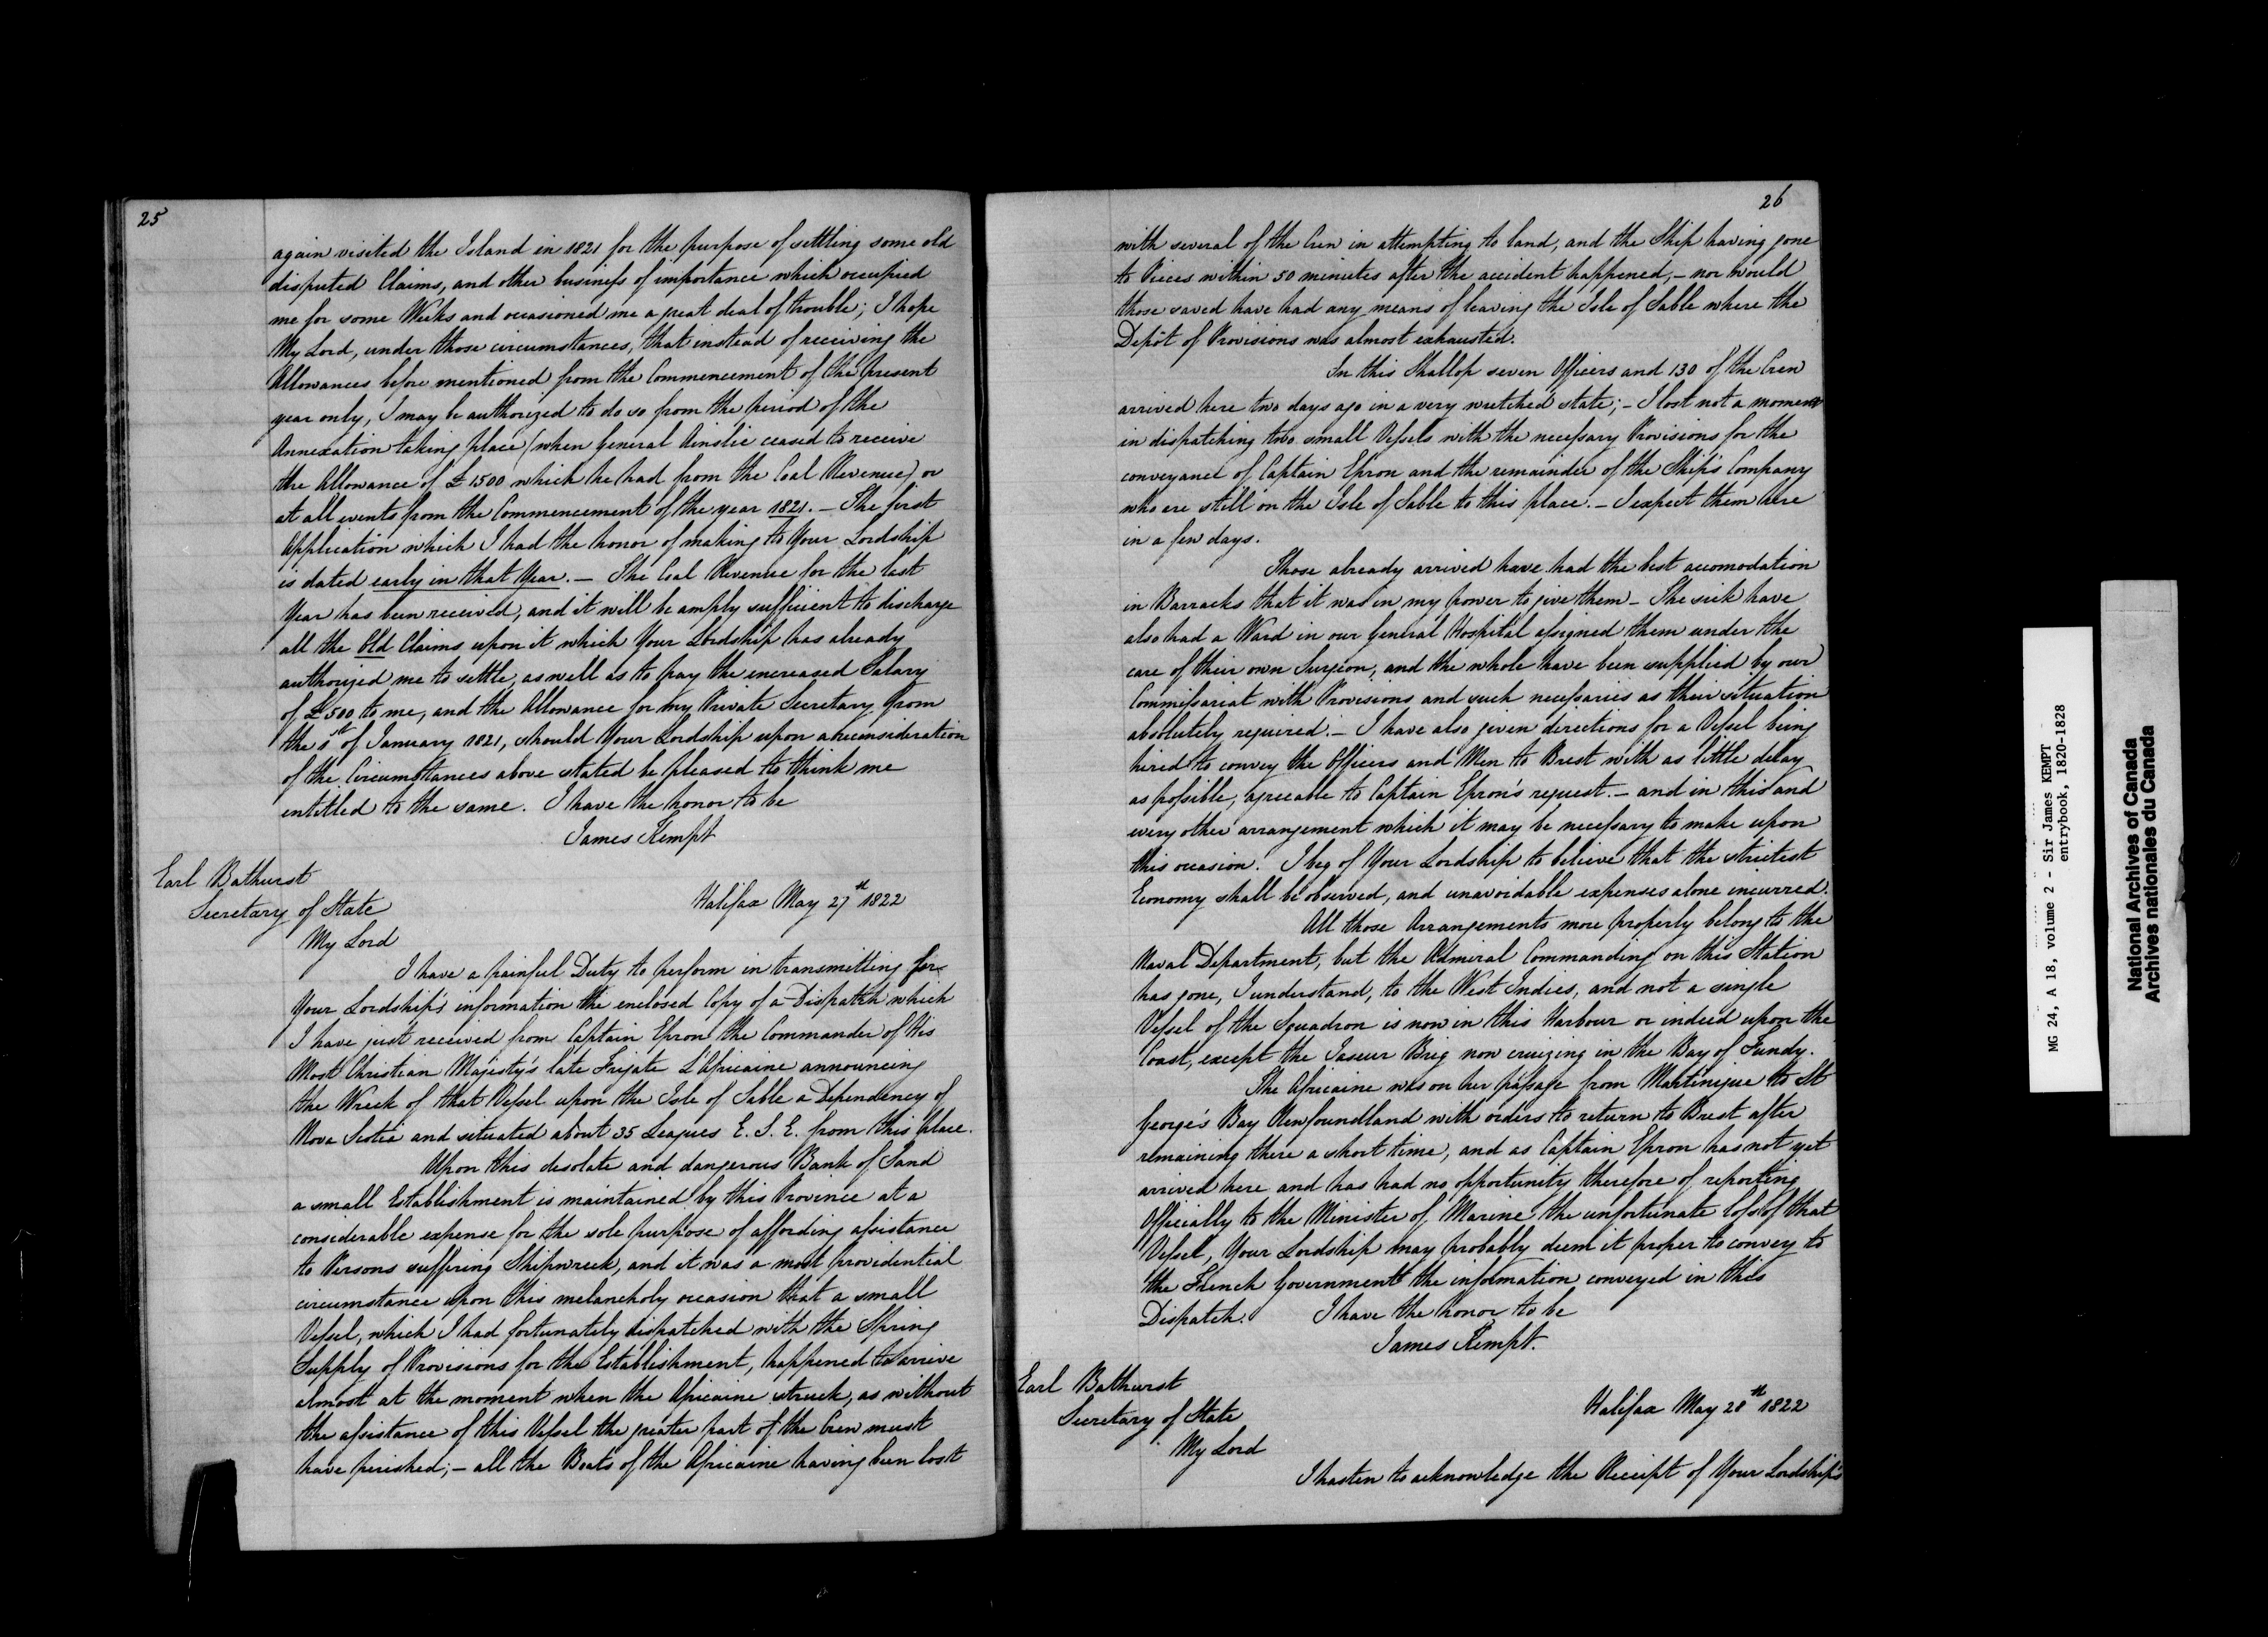 25
again visited the Island in 1821 for the purpose of settling some old
disputed Claims, and other business of importance which occupied
me for some Weeks and occasioned me a great deal of trouble; I hope
My Lord, under those circumstances, that instead of receiving the
Allowances before mentioned from the Commencement of the present
year only, I may be authorized to do so from the period of the
Annexation taking place (when General Ainslie ceased to receive
the Allowance of £1500 which he had from the Coal Revenue) or
at all events from the Commencement of the year 1821. – The first
Application which I had the honor of making to Your Lordship
is dated early in that Year. – The Coal Revenue for the last
Year has been received, and it will be amply sufficient to discharge
all the Old Claims upon it which Your Lordship has already
authorized me to settle, as well as to pay the increased Salary
of £500 to me, and the Allowance for my Private Secretary from
the 1st of January 1821, should Your Lordship upon a reconsideration
of the Circumstances above stated be pleased to think me
entitled to the same. I have the honor to be
James Kempt
Earl Bathurst
Secretary of State
Halifax May 27th 1822
My Lord
I have a painful Duty to perform in transmitting for
Your Lordship's information the enclosed Copy of a Dispatch which
I have just received from Captain Epron the Commander of His
Most Christian Majesty's late Frigate L'Africaine announcing
the Wreck of that Vessel upon the Isle of Sable a Dependency of
Nova Scotia and situated about 35 Leagues E. S. E. from this place.
Upon this desolate and dangerous Bank of Sand
a small Establishment is maintained by this Province at a
considerable expense for the sole purpose of affording assistance
to Persons suffering Shipwreck, and it was a most providential
circumstance upon this melancholy occasion that a small
Vessel, which I had fortunately dispatched with the Spring
Supply of Provisions for the Establishment, happened to arrive
almost at the moment when the Africaine struck, as without
the assistance of this Vessel the greater part of the Crew must
have perished; – all the Boats of the Africaine having been lost
26
with several of the Crew in attempting to land, and the Ship having gone
to Pieces within 50 minutes after the accident happened, – nor would
those saved have had any means of leaving the Isle of Sable where the
Depôt of Provisions was almost exhausted.
In this Shallop seven Officers and 130 of the Crew
arrived here two days ago in a very wretched state; – I lost not a moment
in dispatching two small Vessels with the necessary Provisions for the
conveyance of Captain Epron and the remainder of the Ship's Company
who are still on the Isle of Sable to this place. – I expect them here
in a few days.
Those already arrived have had the best accomodation
in Barracks that it was in my power to give them – The sick have
also had a Ward in our General Hospital assigned them under the
care of their own Surgeon, and the whole have been supplied by our
Commissariat with Provisions and such necessaries as their situation
absolutely required. – I have also given directions for a Vessel being
hired to convey the Officers and Men to Brest with as little delay
as possible, agreeable to Captain Epron's request. – and in this and
every other arrangement which it may be necessary to make upon
this occasion. I beg of Your Lordship to believe that the strictest
Economy shall be observed, and unavoidable expenses alone incurred.
All those Arrangements more properly belong to the
Naval Department, but the Admiral Commanding on this Station
has gone, I understand, to the West Indies, and not a single
Vessel of the Squadron is now in this Harbour or indeed upon the
Coast, except the Jaseur Brig now cruizing in the Bay of Fundy.
The Africaine was on her passage from Martinique to St
George's Bay Newfoundland with orders to return to Brest after
remaining there a short time, and as Captain Epron has not yet
arrived here and has had no opportunity therefore of reporting
Officially to the Minister of Marine the unfortunate loss of that
Vessel, Your Lordship may probably deem it proper to convey to
the French Government the information conveyed in this
Dispatch. I have the honor to be
James Kempt.
Earl Bathurst
Secretary of State
Halifax May 28th 1822
My Lord
I hasten to acknowledge the Receipt of Your Lordship's
MG 24, A 18, volume 2 - Sir James KEMPT
entrybook, 1820-1828
National Archives of Canada
Archives nationales du Canada